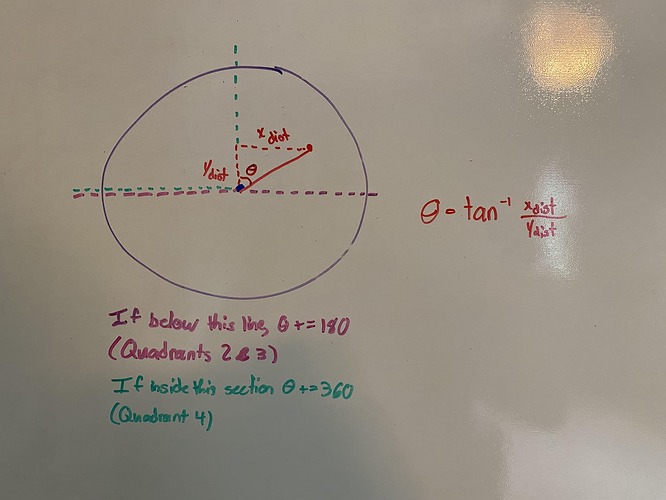 x dist
y dist
θ
θ = tan⁻¹ x dist / y dist
If below this line, θ += 180
(Quadrants 2 & 3)
If inside this section θ += 360
(Quadrant 4)